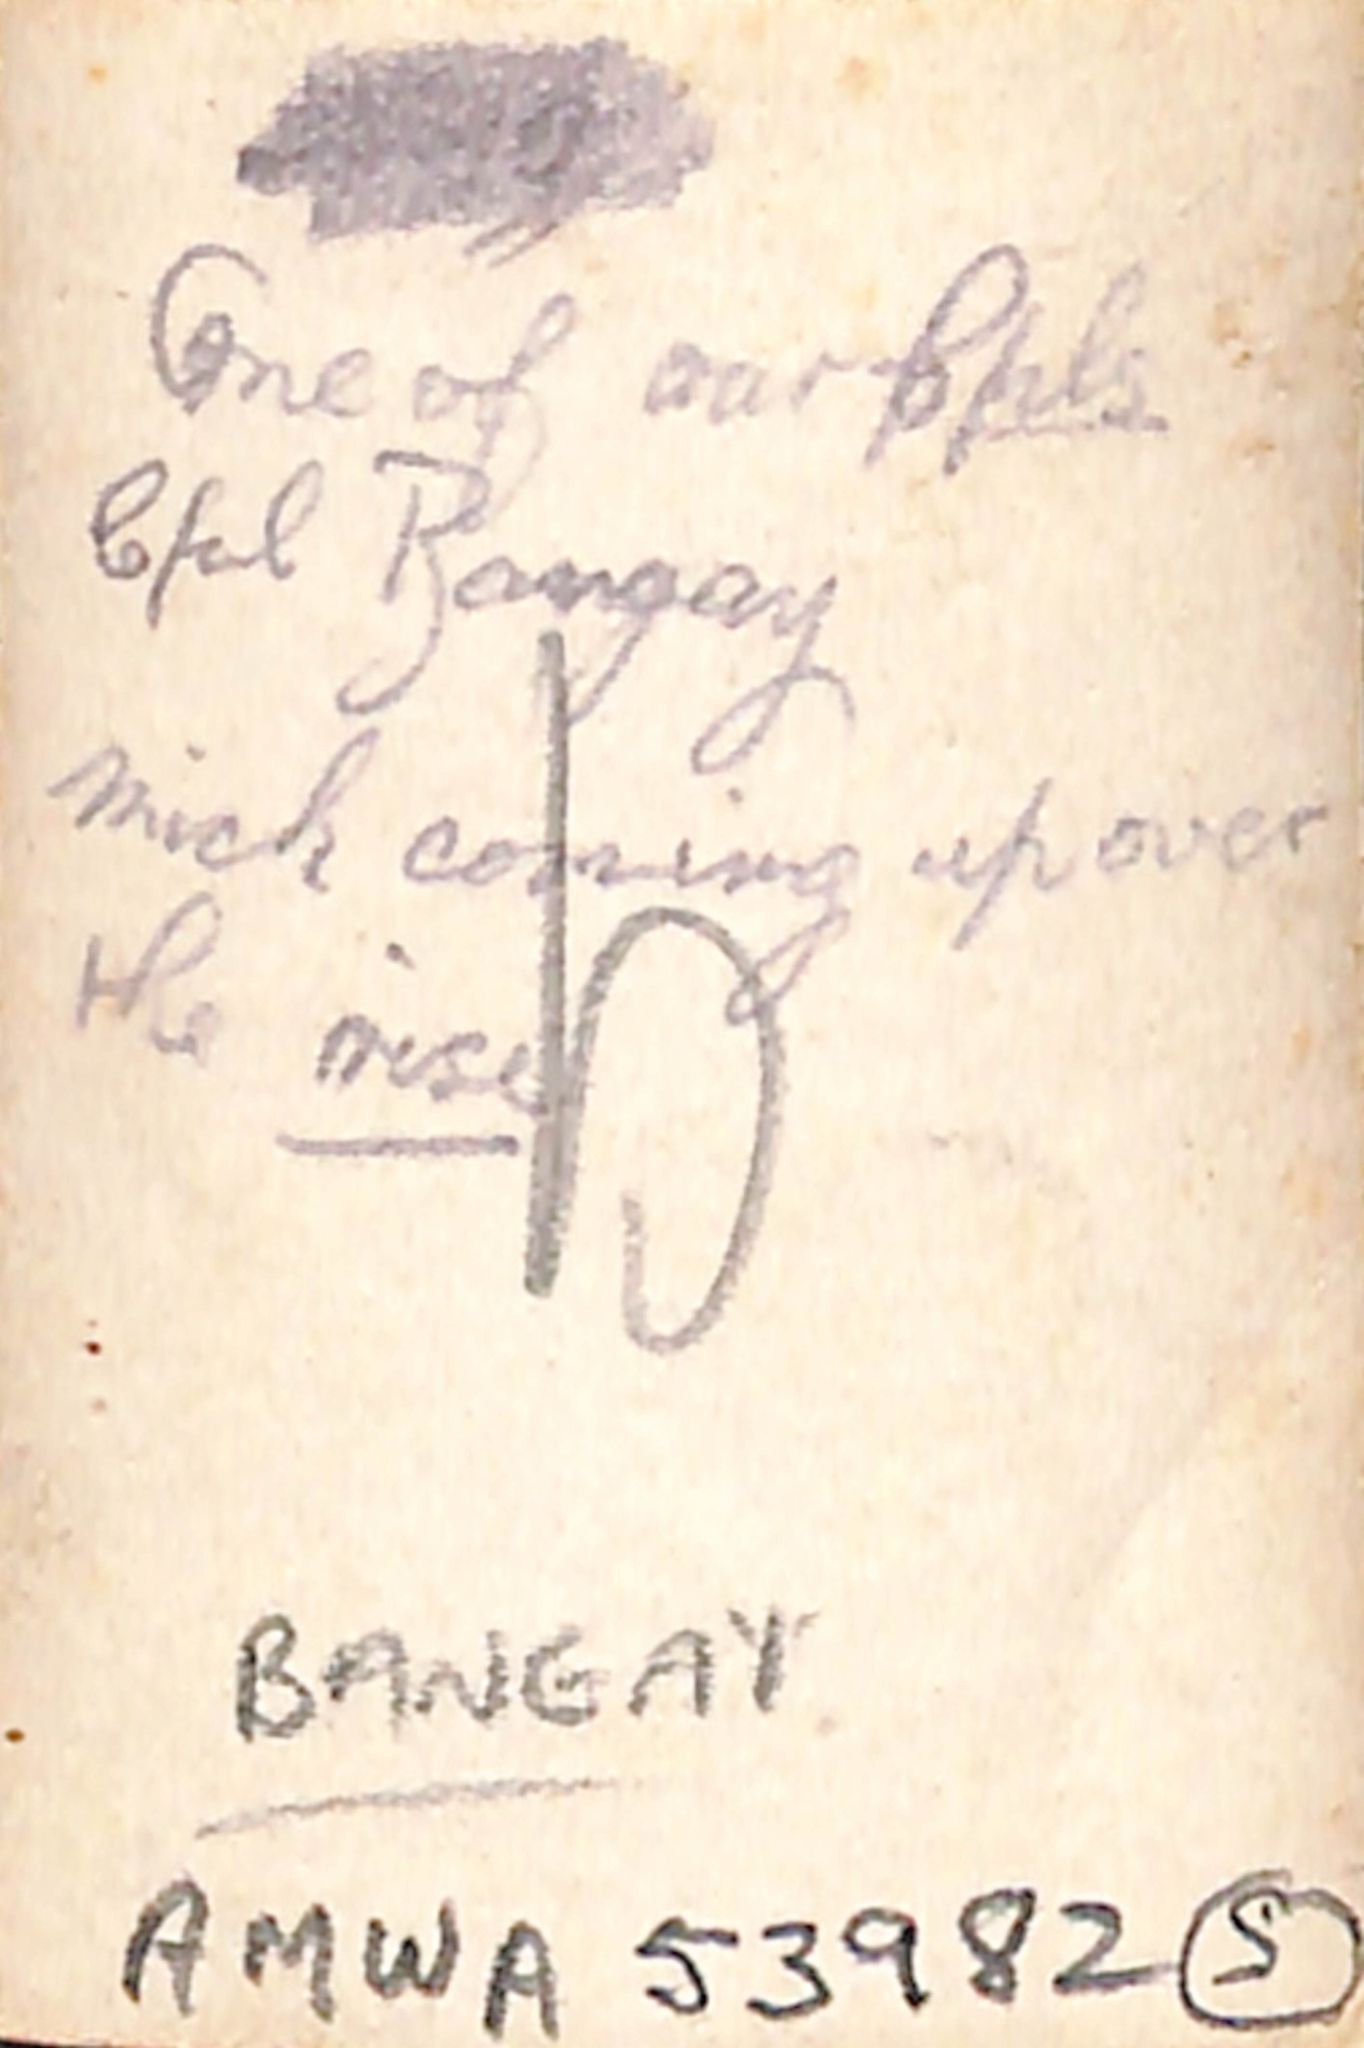 One of our Cpls.
Cpl Bangay
Mick coming up over
the rise
BANGAY
AMWA 53982 S